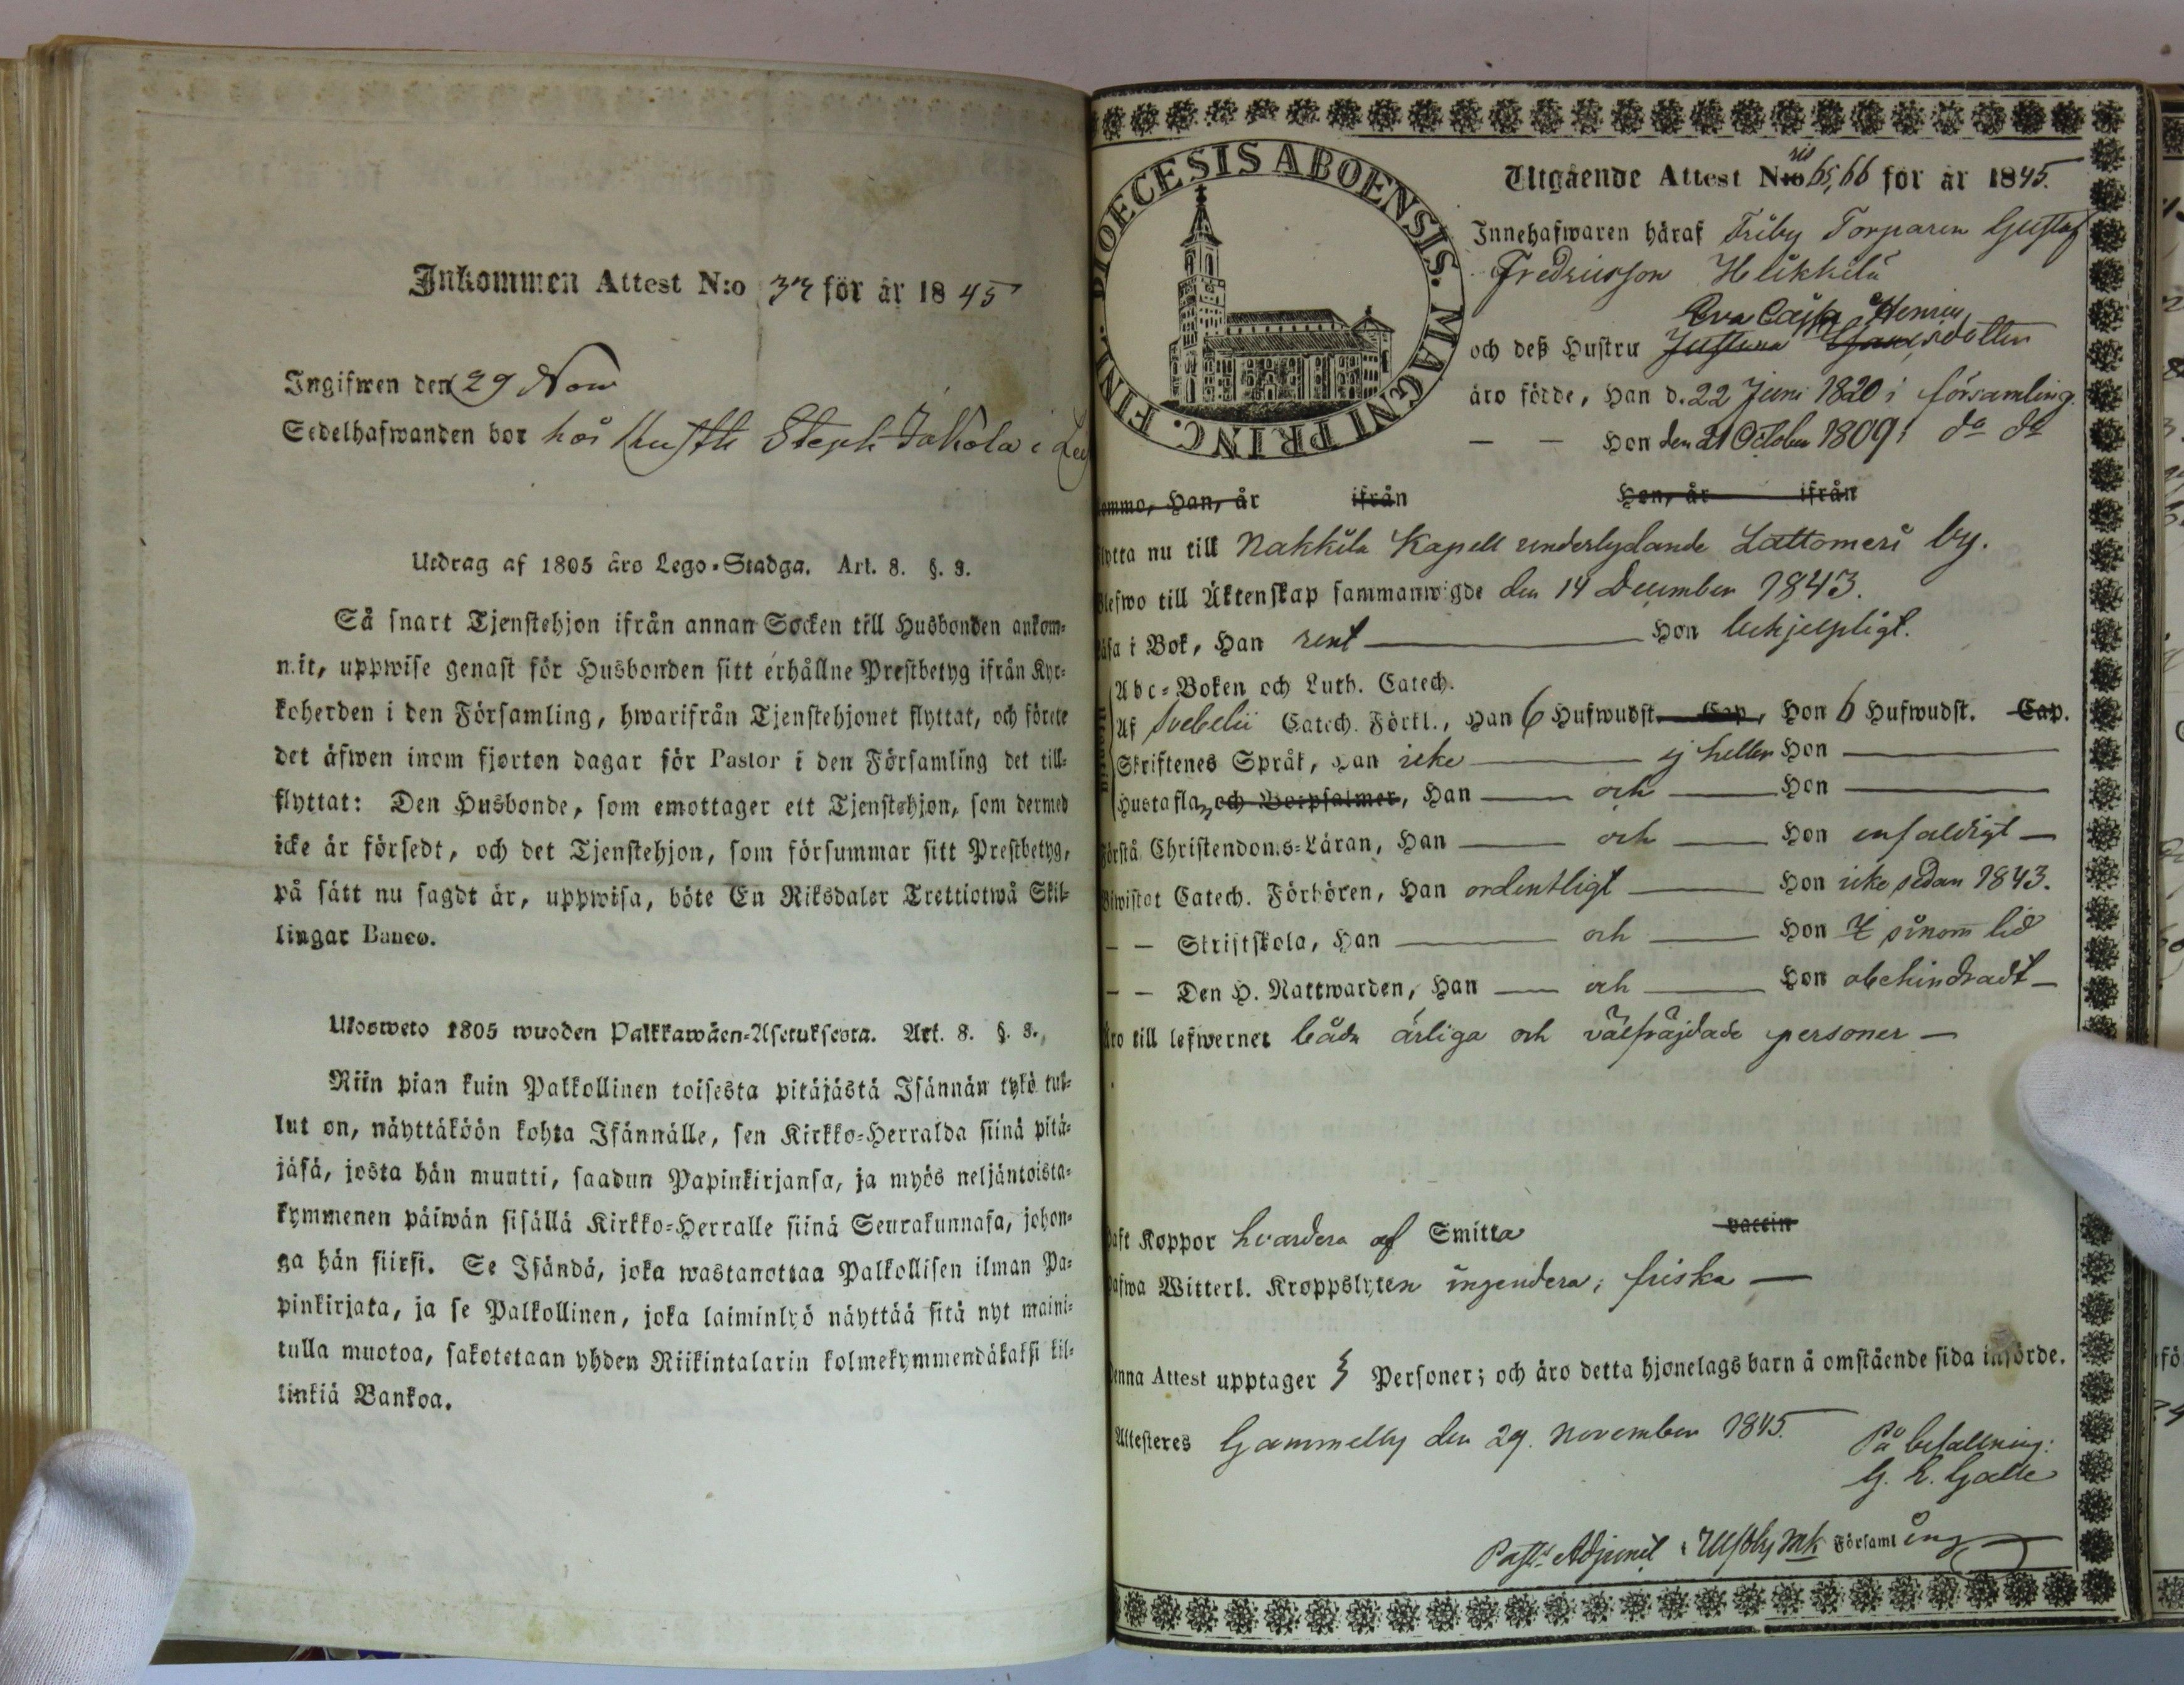 Inkommen Attest N:o 37 för år 1845
Ingifwen den 29 Nov
Sedelhafwanden bor hos Steph Jakola i
Utdrag af 1805 års Lego-Stadga. Art. 8. §. 3.
Så snart Tjenstehjon ifrån annan Socken till Husbonden ankom-
mit, uppwise genast för Husbonden sitt erhållne Prestbetyg ifrån Kyr-
koherden i den Församling, hwarifrån Tjenstehjonet flyttat, och förete
det äfwen inom fjorton dagar för Pastor i den Församling det till-
flyttat: Den Husbonde, som emottager ett Tjenstehjon, som dermed
icke är försedt, och det Tjenstehjon, som försummar sitt Prestbetyg,
på sätt nu sagdt är, uppwisa, böte En Riksdaler Trettiotwå Skil-
lingar Banco.
Ulosweto 1805 wuoden Palkkawäen-Asetuksesta. Art. 8. §. 3.
Niin pian kuin Palkollinen toisesta pitäjästä Isännän tykö tul-
lut on, näyttäköön kohta Isännälle, sen Kirkko-Herralda siinä pitä-
jäsä, josta hän muutti, saadun Papinkirjansa, ja myös neljäntoista-
kymmenen päiwän sisällä Kirkko-Herralle siinä Seurakunnasa, johon-
ga hän siirsi. Se Isändä, joka wastanottaa Palkollisen ilman Pa-
pinkirjata, ja se Palkollinen, joka laiminlyö näyttää sitä nyt maini-
tulla muotoa, sakotetaan yhden Riikintalarin kolmekymmendäkaksi kil-
linkiä Bankoa.
DIOECESIS ABOENSIS. MAGNI PRINC. FINL.
Utgående Attest N:ris 65, 66 för år 1845.
Innehafwaren häraf Friby Torparen Gustaf
Fredricsson Heikkilä
Eva Cajsa Henrics
och deß Hustru Justina dotter
äro födde, Han d. 22 Juni 1820 i församling.
— — Hon den 21 October 1809 i do do
komma, Han, år ifrån Hon, år ifrån
flytta nu till Nakkila Kapell underlydande Lattomeri by.
Blefwo till Äktenskap sammanwigde den 14 December 1843.
Läsa i Bok, Han rent — Hon behjelpligt.
Abc-Boken och Luth. Catech.
Af Svebelii Catech. Förkl., Han 6 Hufwudst. Cap, Hon 6 Hufwudst. Cap.
Skriftenes Språk, Han icke — ej heller Hon —
Hustafla, och Botpsalmer, Han — och — Hon —
Förstå Christendoms-Läran, Han — och — Hon enfaldigt —
Biwistat Catech. Förhören, Han ordentligt — Hon icke sedan 1843.
— — Skriftskola, Han — och — Hon i sinom tid
— — Den H. Nattwarden, Han — och — Hon obehindradt —
Äro till lefwernet båda ärliga och välfräjdade personer —
Haft Koppor hvardera af Smitta vaccin
Hafwa Witterl. Kroppslyten ingendera; friska —
Denna Attest upptager 3 Personer; och äro detta hjonelags barn å omstående sida införde.
Attesteres Gammelby den 29. November 1845.
På befallning:
G. E. Galle
Past:s Adjunct i Ulfsby mk Församling